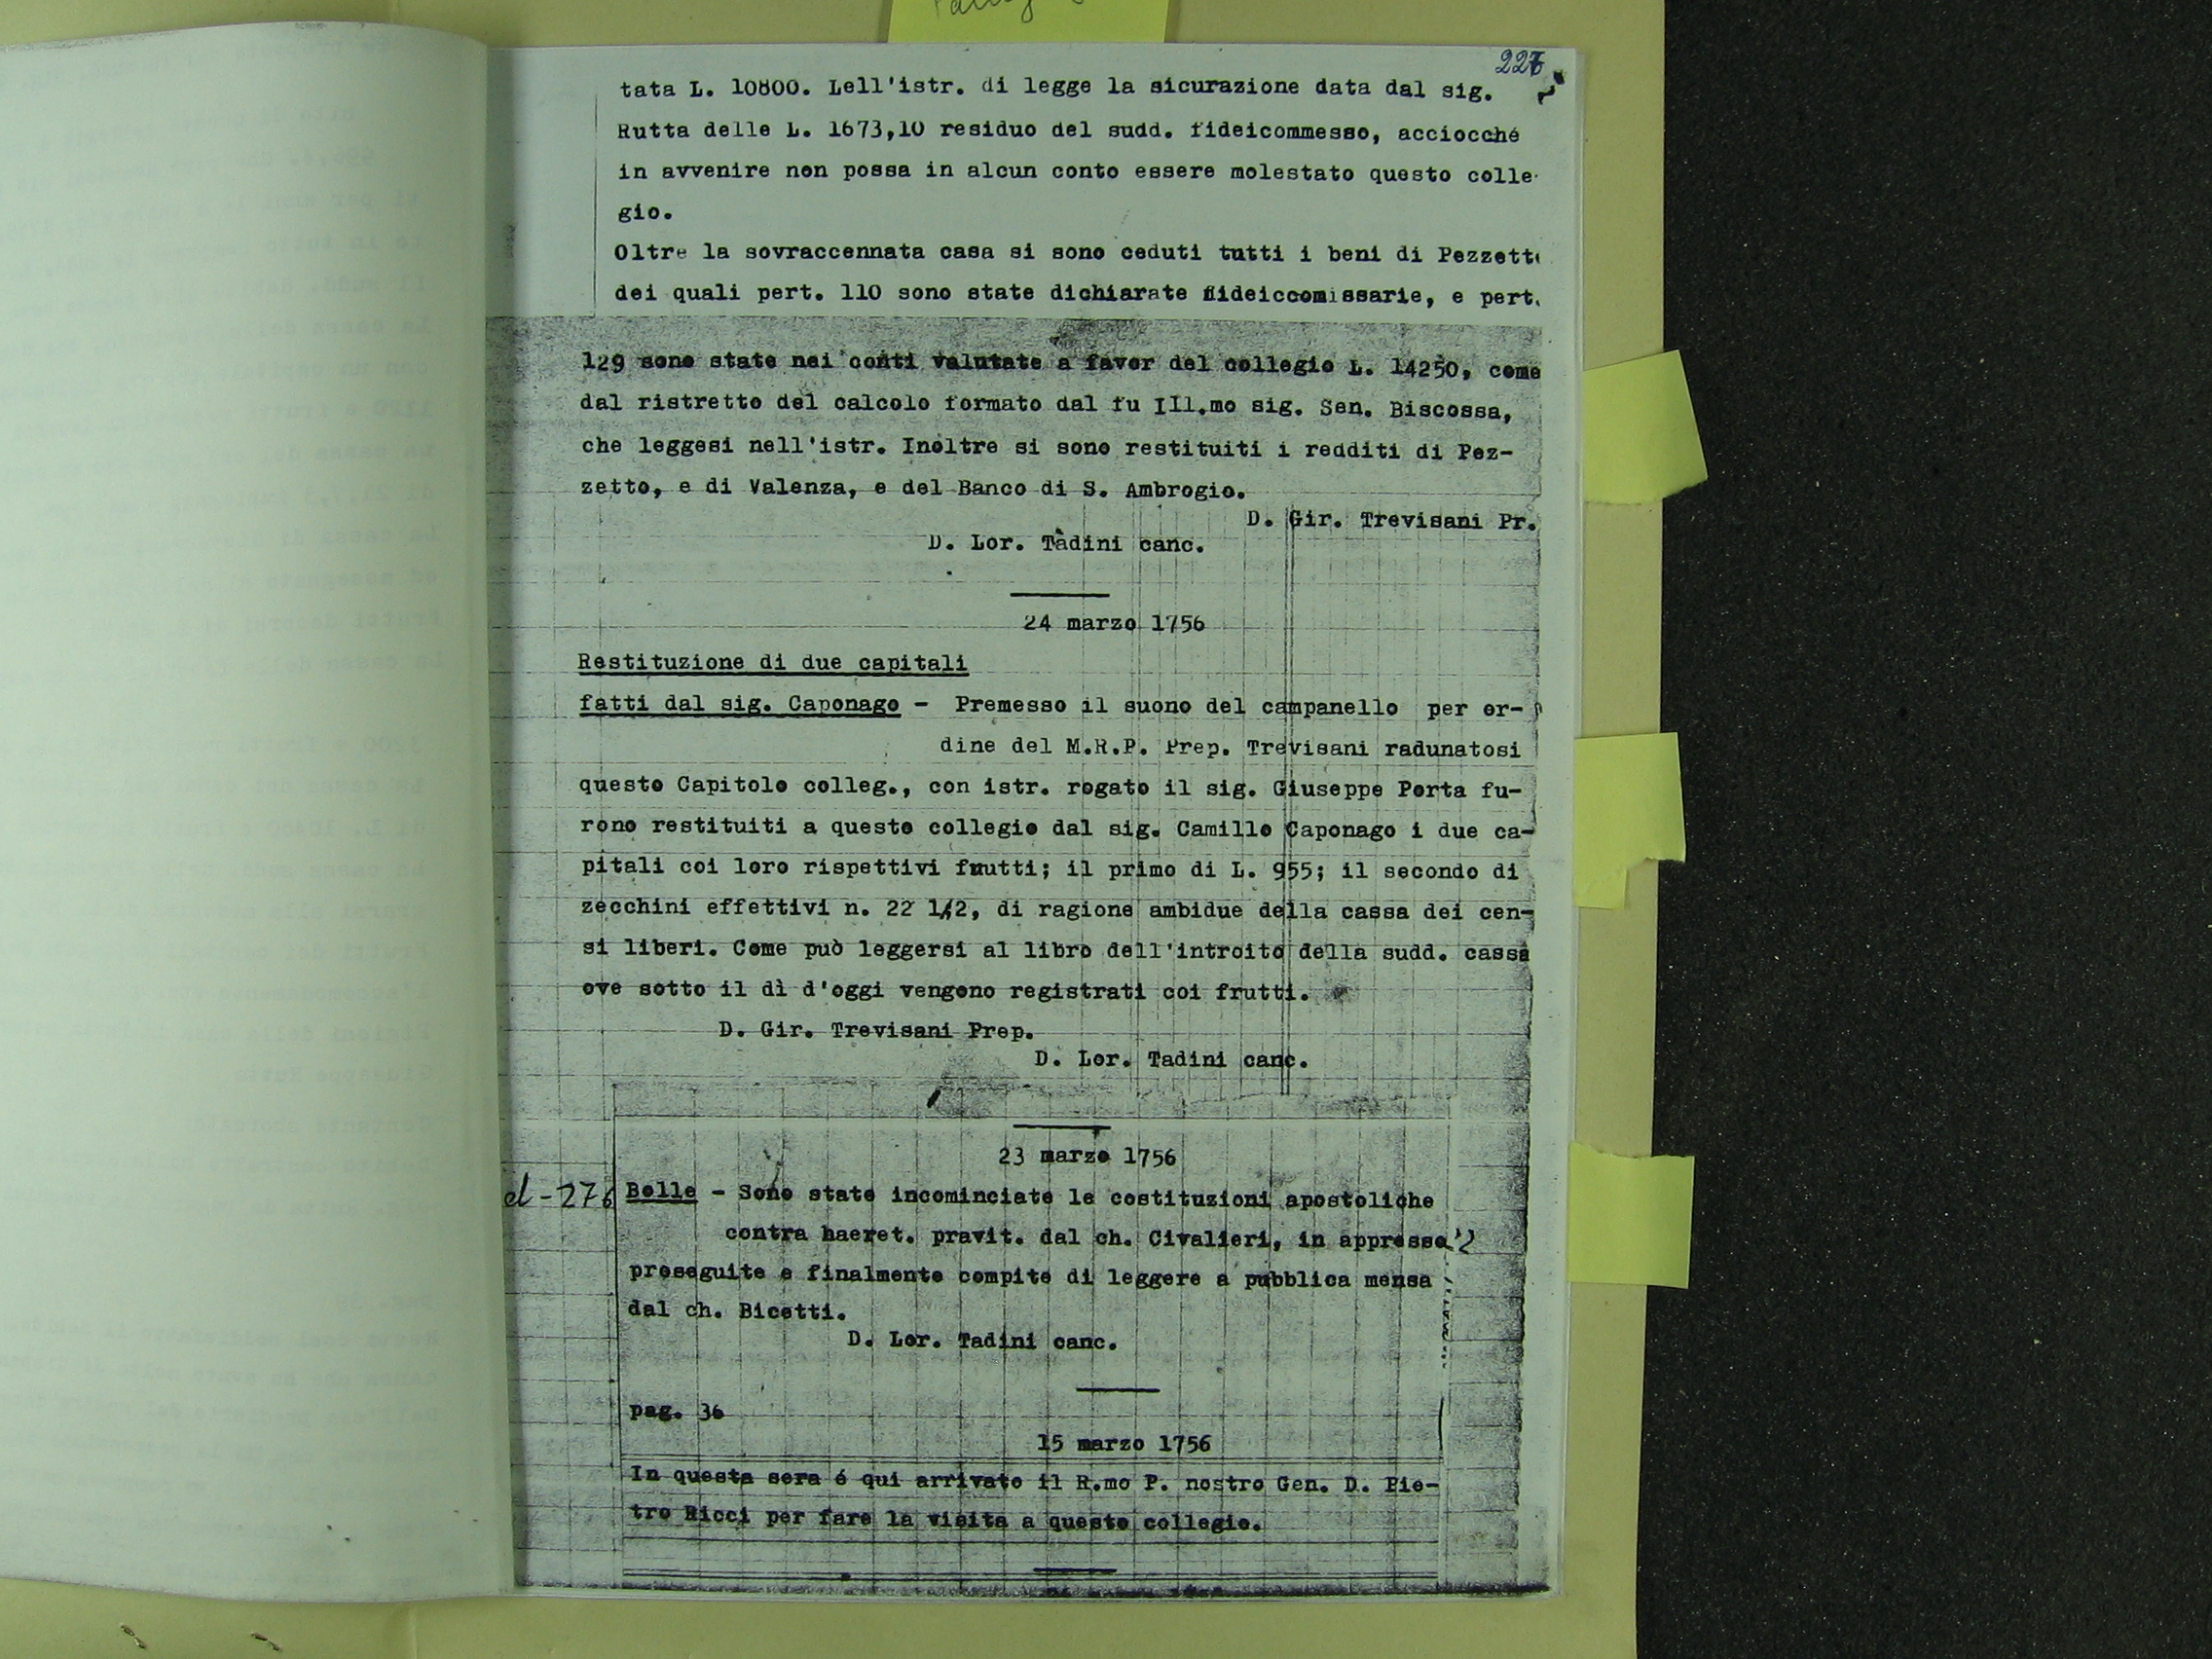 tata L. 10800. Lell'istr. di legge la sicurazione data dal sig.
Rutta delle L. 1673,10 residuo del sudd. fideicommesso, acciocché
in avvenire non possa in alcun conto essere molestato questo colle-
gio.
Oltre la sovraccennata casa si sono ceduti tutti i beni di Pezzett
dei quali pert. 110 sono state dichiarate fideiccomissarie, e pert.
129 sono state nei conti valutate a favor del collegio L. 14250, come
dal ristretto del calcolo formato dal fu Ill.mo sig. Sen. Biscossa,
che leggesi nell'istr. Inoltre si sono restituiti i redditi di Pez-
zetto, e di Valenza, e del Banco di S. Ambrogio.
D. Gir. Trevisani Pr.
D. Lor. Tadini canc.
24 marzo 1756
Restituzione di due capitali
fatti dal sig. Caponago - Premesso il suono del campanello per or-
dine del M.R.P. Prep. Trevisani radunatosi
questo Capitolo colleg., con istr. rogato il sig. Giuseppe Porta fu-
rono restituiti a questo collegio dal sig. Camillo Caponago i due ca-
pitali coi loro rispettivi frutti; il primo di L. 955; il secondo di
zecchini effettivi n. 22 1/2, di ragione ambidue della cassa dei cen-
si liberi. Come può leggersi al libro dell'introito della sudd. cassa
ove sotto il dì d'oggi vengono registrati coi frutti.
D. Gir. Trevisani Prep.
D. Lor. Tadini canc.
23 marzo 1756
Bolle - Sono state incominciate le costituzioni apostoliche
contra haeret. pravit. dal ch. Civalieri, in appresso
proseguite e finalmente compite di leggere a pubblica mensa
dal ch. Bicetti.
D. Lor. Tadini canc.
pag. 36
15 marzo 1756
In questa sera é qui arrivato il R.mo P. nostro Gen. D. Pie-
tro Ricci per fare la visita a questo collegio.